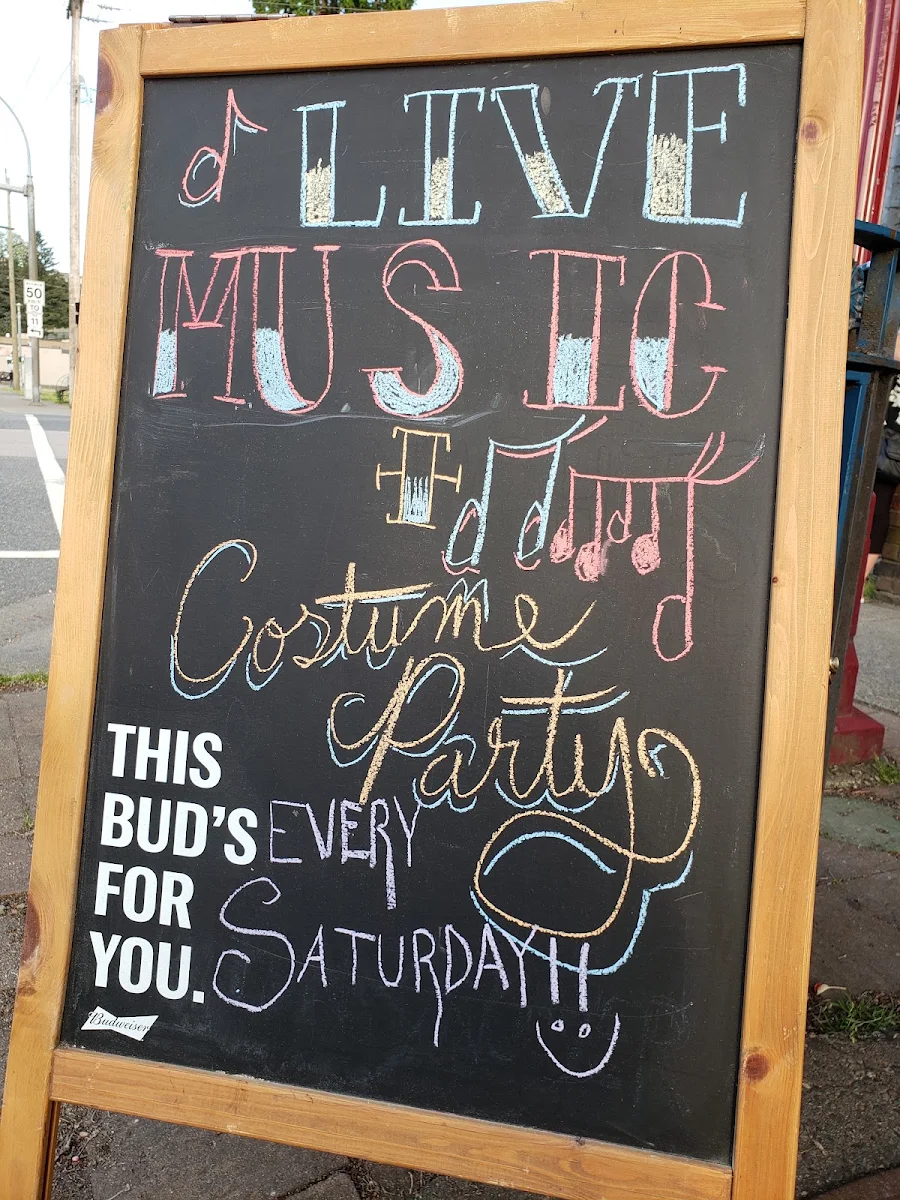 LIVE
MUSIC
Costume
Party
THIS
BUD'S
FOR
YOU.
Budweiser
EVERY
SATURDAY!!
50